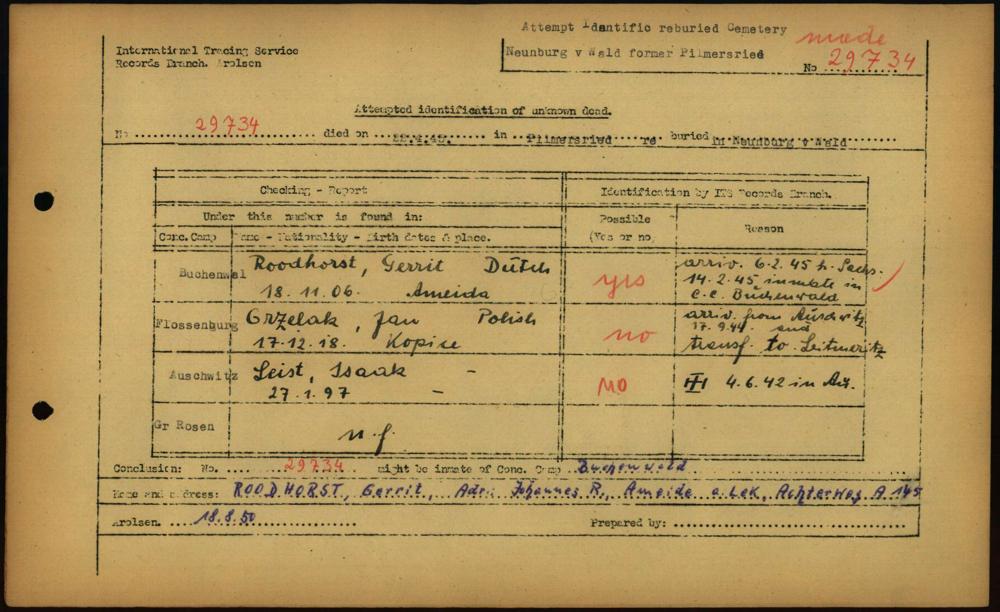 Attempt Identific reburied Cemetery
Neunburg v Wald former Pilmersried
made
No 29734
International Tracing Service
Records Branch. Arolsen
Attempted identification of unknown dead.
No 29734 died on 22.4.45. in Pilmersried re buried in Neunburg v Wald
Checking - Report
Identification by ITS Records Branch.
Under this number is found in:
Possible
(Yes or no)
Reason
Conc. Camp
Name - Nationality - Birth dates & place.
Buchenwal Roodhorst, Gerrit Dutch
18.11.06. Ameida
yes
arriv. 6.2.45 fr. Sachs.
14.2.45 inmate in
C.C. Buchenwald
Flossenburg Grzelak, Jan Polish
17.12.18. Kopice
no
arriv. from Auschwitz
17.9.44 and
transf. to Leitmeritz
Auschwitz Leist, Isaak -
27.1.97 -
NO
4.6.42 in Au.
Gr Rosen
n.f.
Conclusion: No. 29734 might be inmate of Conc. Camp Buchenwald
Name and address: ROODHORST, Gerrit, Adr.: Johannes R., Ameide a. Lek, Achterweg A. 145
Arolsen. 18.8.50
Prepared by: